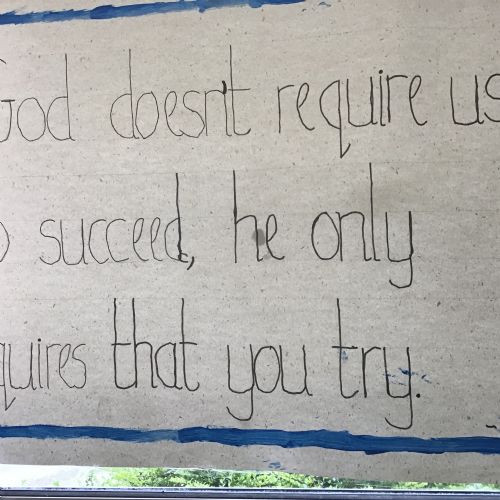 God doesn't require us
succeed, he only
quires that you try.